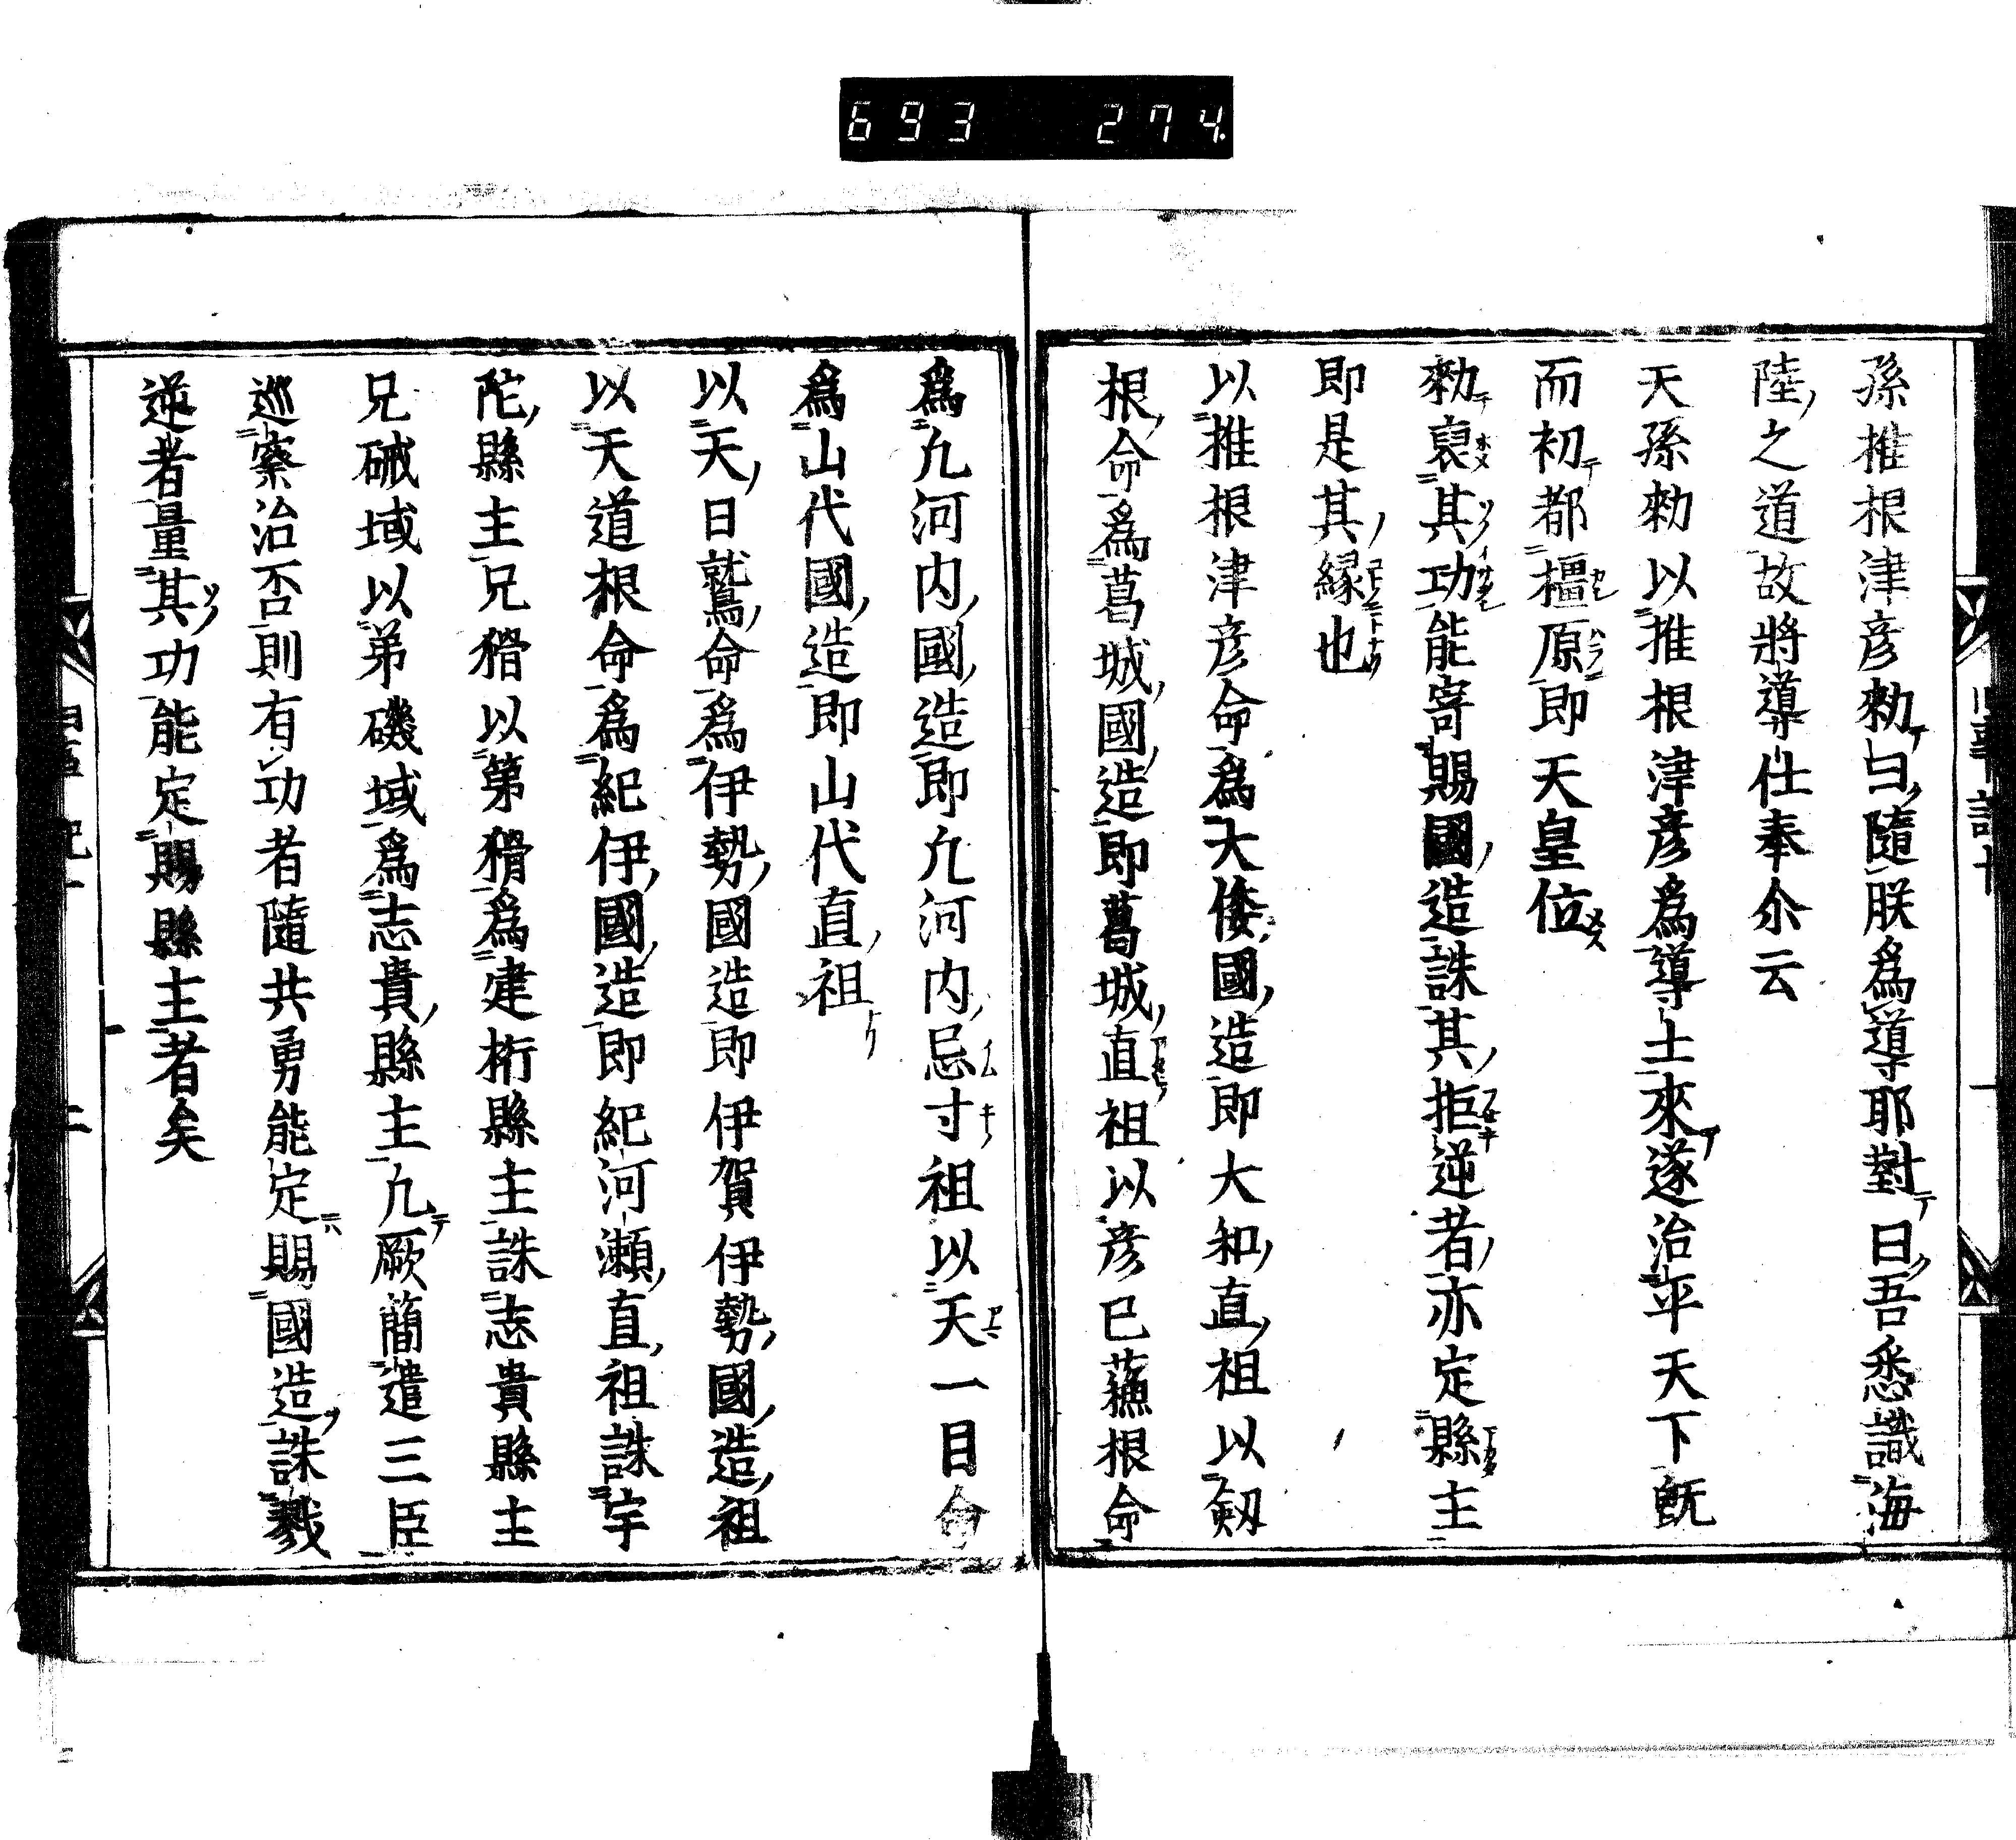 693 274
孫椎根津彦勑曰隨朕爲導耶對曰吾悉識海
陸之道故將導仕奉尒云
天孫勑以推根津彦爲導士來遂治平天下旣
而初都橿原即天皇位
勑裒其功能寄賜國造誅其拒逆者亦定縣主
即是其縁也
以推根津彦命爲大倭國造即大和直祖以剱
根命爲葛城國造即葛城直祖以彦已蘓根命
爲凢河内國造即凢河内忌寸祖以天一目命
爲山代國造即山代直祖
以天日鷲命爲伊勢國造即伊賀伊勢國造祖
以天道根命爲紀伊國造即紀河瀬直祖誅宇
陀縣主兄猾以第猾爲建桁縣主誅志貴縣主
兄磩域以弟磯域爲志貴縣主凢厥簡遣三臣
巡察治否則有功者隨共勇能定賜國造誅戮
逆者量其功能定賜縣主者矣